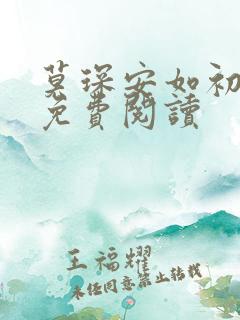 莫琛安如初
免費閱讀
王福耀
未经同意禁止转载